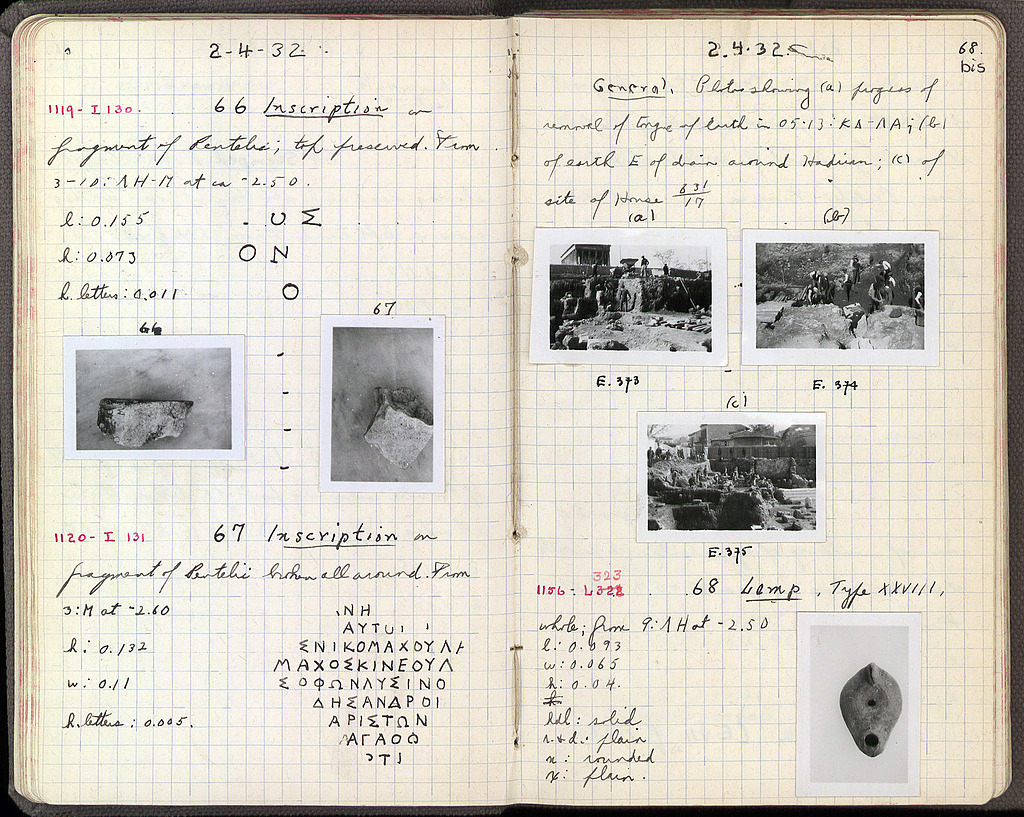 2-4-32
1119-I 130. 66 Inscription on
fragment of Pentelic; top preserved. From
3-10:ΛΗ-Μ at ca -2.50.
l: 0.155 . U Σ
h: 0.073 Ο Ν
h. letters: 0.011 Ο
66
67
1120-I 131 67 Inscription on
fragment of Pentelic broken all around. From
3:M at -2.60
h: 0.132
w: 0.11
h. letters: 0.005.
ΝΗ
ΑΥΤ
ΣΝΙΚΟΜΑΧΟΥΛ
ΜΑΧΟΣΚΙΝΕΟΥΛ
ΣΟΦΩΝΛΥΣΙΝΟ
ΔΗΣΑΝΔΡΟΙ
ΑΡΙΣΤΩΝ
ΑΓΑΘΟ
ΤΙ
2.4.32
68
bis
General. Photos showing (a) progress of
removal of tongue of earth in 05-13:ΚΔ-ΛΑ; (b)
of earth E of drain around Hadrian; (c) of
site of House 631/17
(a) (b)
E.373 E.374
(c)
E.375
323
1156-L322 68 Lamp, Type XXVIII,
whole; from 9:ΛΗ at -2.50
l: 0.093
w: 0.065
h: 0.04.
h
hdl: solid
r.&d.: plain
n: rounded
x: plain.